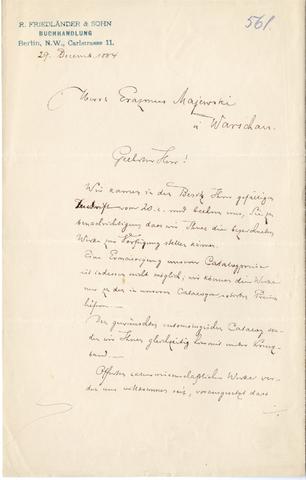 R. FRIEDLÄNDER & SOHN
BUCHHANDLUNG
Berlin, N.W., Carlstrasse 11.
29. Decemb. 1884
561.
Herrn Erasmus Majewski
in Warschau.
Geehrter Herr!
Wir kamen in den Besitz Ihrer gefälligen
Zuschrift vom 20. c. und beehren uns, Sie zu
benachrichtigen dass wir Ihnen die bezeichneten
Werke zur Verfügung stellen können.
Eine Ermässigung unserer Catalogpreise
ist indessen nicht möglich, wir können die Werke
nur zu den in unseren Catalogen notirten Preisen
liefern.
Den gewünschten entomologischen Catalog sen-
den wir Ihnen gleichzeitig hiermit unter Kreuz-
band.
Offerten naturwissenschaftlicher Werke wer-
den uns willkommen sein, vorausgesetzt dass